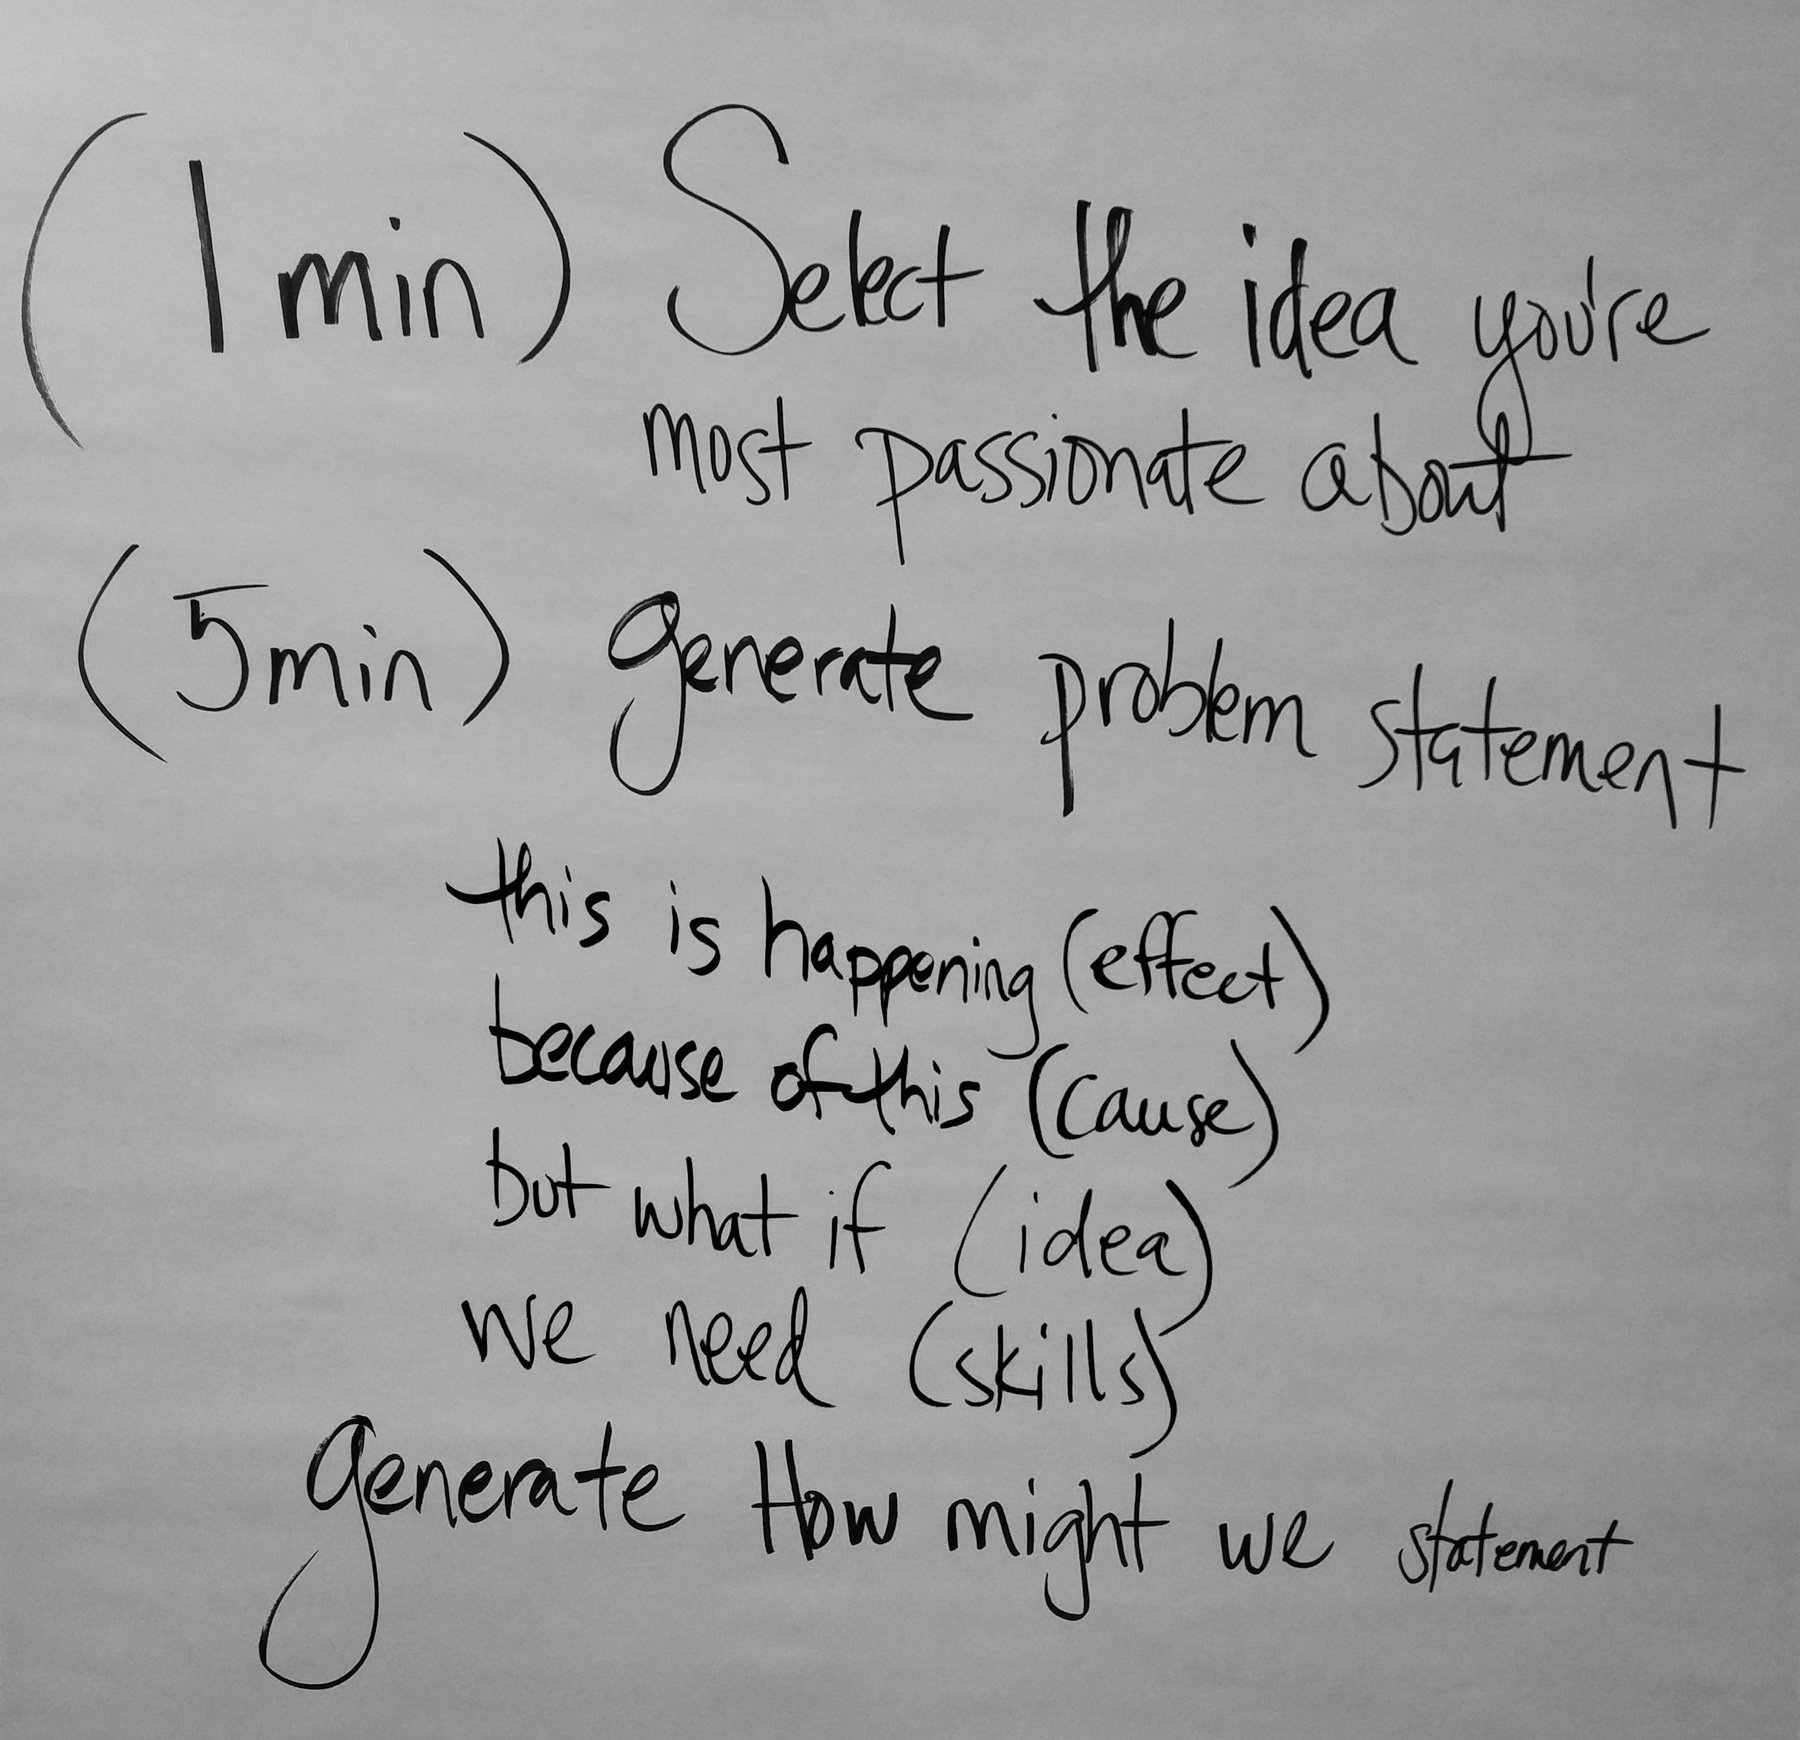 (1 min) Select the idea you're
most passionate about
(5min) generate problem statement
this is happening (effect)
because of this (cause)
but what if (idea)
we need (skills)
generate How might we statement